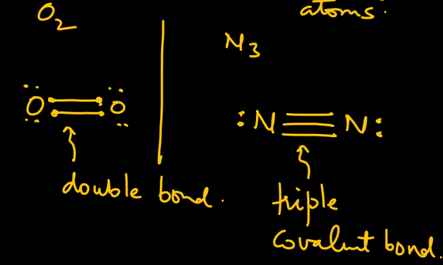 atoms:
O2
N3
:Ö=Ö:
:N≡N:
double bond.
triple
covalent bond.